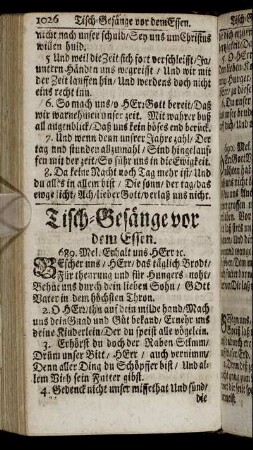 1026 Tisch-Gesänge vor dem Essen.
nicht nach unser schuld/Sey uns um Christus
willen huld.
5 Und weil die Zeit sich fort verschleisst/Ja/
untern Händen uns wegreisst / Und wir mit
der Zeit lauffen hin/Und werdens doch nicht
eins recht inn.
6. So mach uns/o HErr Gott bereit/Daß
wir warnehmen unser zeit. Mit wahrer buß
all augenblick/Daß uns kein böses end berück.
7. Und wenn denn unser Jahre zahl/ Der
tag und stunden allzumahl/ Sind hingelauf-
fen mit der zeit/So führ uns in die Ewigkeit.
8. Da keine Nacht noch Tag mehr ist/ Und
du alles in allem bist / Die sonn/der tag/das
ewge licht/Ach/lieber Gott/verlaß uns nicht.
Tisch-Gesänge vor
dem Essen.
689. Mel. Erhalt uns HErr ec.
BEscher uns / HErr/das täglich Brodt/
Für theurung und für Hungers-noht/
Behüt uns durch dein lieben Sohn/ GOtt
Vater in dem höchsten Thron.
2. O HErr/thu auf dein milde hand/Mach
uns dein Gnad und Güt bekand/Ernehr uns
deine Kinderlein/Der du speist alle vögelein.
3. Erhörst du doch der Raben Stimm/
Drüm unser Bitt/ HErr/ auch vernimm/
Denn aller Ding du Schöpffer bist/ Und al-
lem Vieh sein Futter gibst.
4. Gedenck nicht unser missethat Und sünd/
die